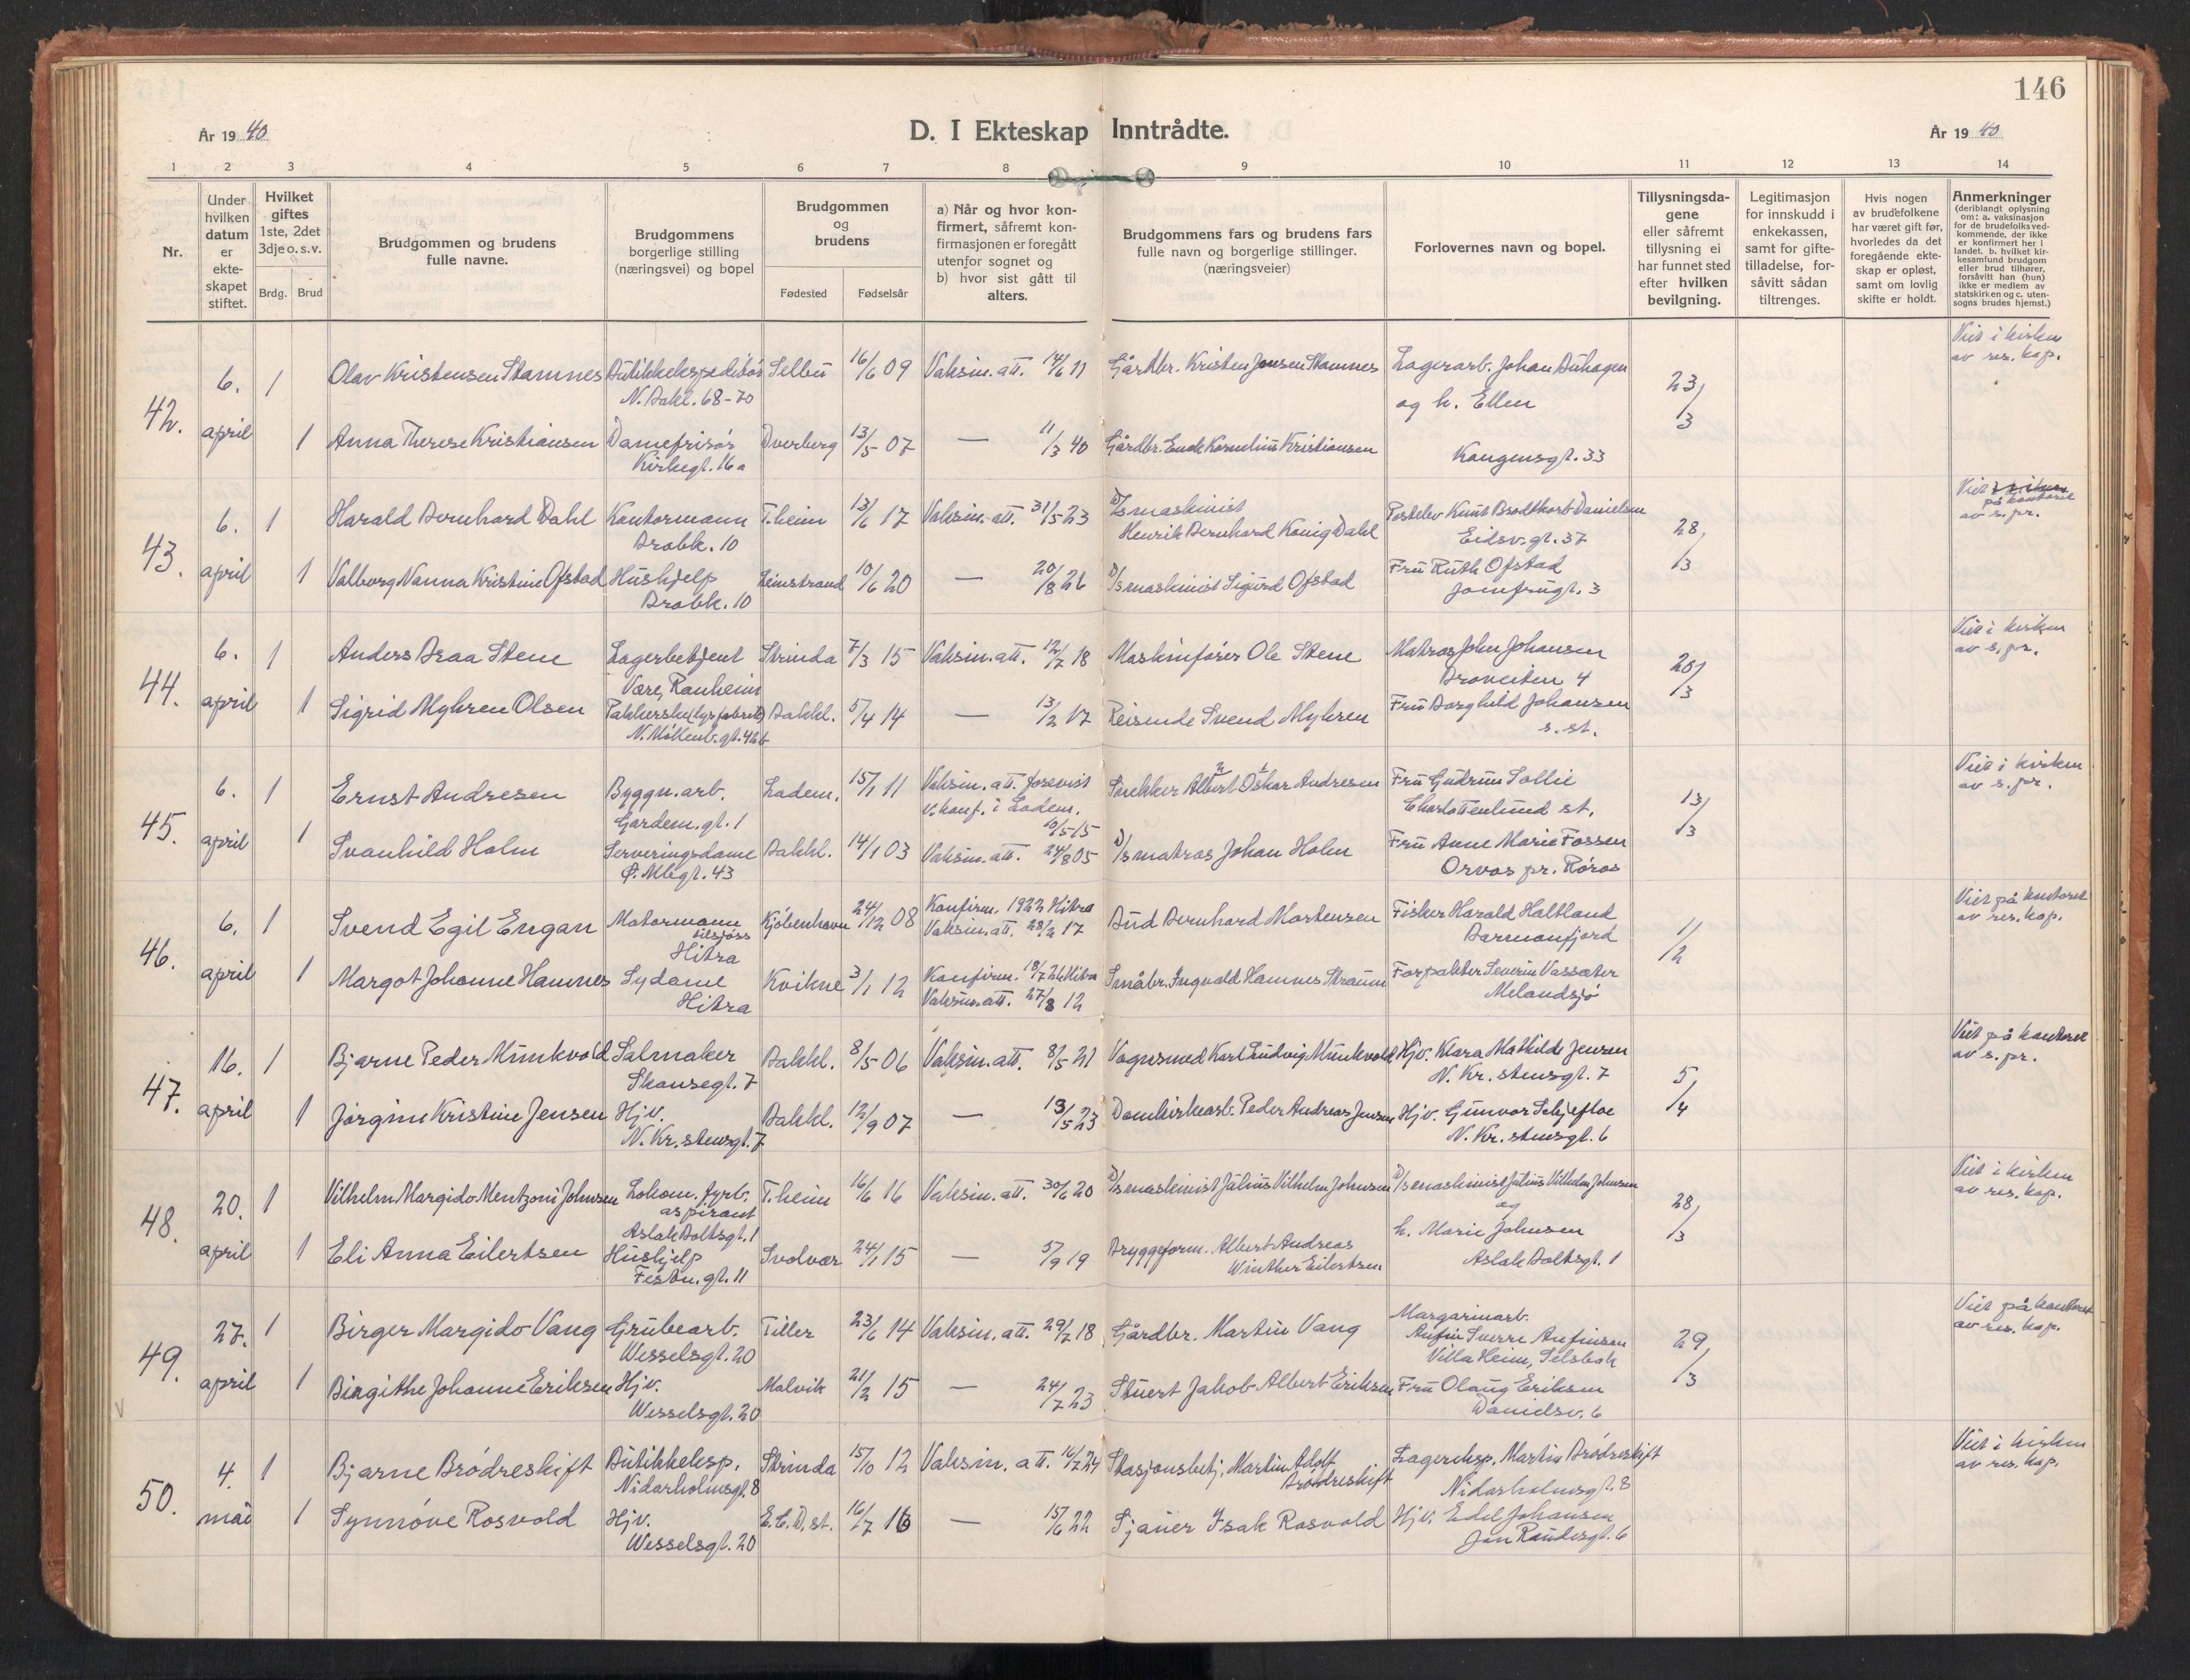 146
År 19 40
D. I Ekteskap Inntrådte.
År 19 40
1 2 3 4 5 6 7 8 9 10 11 12 13 14
Nr.
Under hvilken datum er ekte-skapet stiftet.
Hvilket giftes 1ste, 2det 3dje o. s. v.
Brdg. Brud
Brudgommen og brudens fulle navne.
Brudgommens borgerlige stilling (næringsvei) og bopel
Brudgommen og brudens
Fødested Fødselsår
a) Når og hvor kon-firmert, såfremt kon-firmasjonen er foregått utenfor sognet og
b) hvor sist gått til alters.
Brudgommens fars og brudens fars fulle navn og borgerlige stillinger. (næringsveier)
Forlovernes navn og bopel.
Tillysningsda-gene eller såfremt tillysning ei har funnet sted efter hvilken bevilgning.
Legitimasjon for innskudd i enkekassen, samt for gifte-tilladelse, for-såvitt sådan tiltrenges.
Hvis nogen av brudefolkene har været gift før, hvorledes da det foregående ekte-skap er opløst, samt om lovlig skifte er holdt.
Anmerkninger (deriblandt oplysning om: a. vaksinasjon for de brudefolksved-kommende, der ikke er konfirmert her i landet. b. hvilket kir-kesamfund brudgom eller brud tilhører, forsåvitt han (hun) ikke er medlem av statskirken og c. uten-sogns brudes hjemst.)
42. 6. april 1 Olav Kristensen Stamnes Butikkekspeditør N. Bakl. 68-70 Selbu 16/6 09 Vaksin. att. 14/6 11 Gårdbr. Kristen Jonsen Stamnes Lagerarb. Johan Buhagen og h. Ellen 23/3 Viet i kirken av res. kap.
1 Anna Therese Kristiansen Damefrisør Kirkegt. 16a Dverberg 13/5 07 — 11/3 40 Gårdbr. Enok Kornelius Kristiansen Kongensgt. 33
43. 6. april 1 Harald Bernhard Dahl Kontormann Brobk. 10 T.heim 13/6 17 Vaksin. att. 31/5 23 D/s maskinist Henrik Bernhard Konig Dahl Postelev Knut Brodtkorb Danielsen Eidsv. gt. 37 28/3 Viet på kontoret av s. pr.
1 Valborg Nanna Kristine Ofstad Hushjelp Brobk. 10 Leinstrand 10/6 20 — 20/8 26 D/s maskinist Sigurd Ofstad Fru Ruth Ofstad Jomfrugt. 3
44. 6. april 1 Anders Braa Stene Lagerbetjent Være, Ranheim Strinda 7/3 15 Vaksin. att. 12/7 18 Maskinfører Ole Stene Matros John Johansen Broveiten 4 20/3 Viet i kirken av s. pr.
1 Sigrid Myhren Olsen Pakkerske (lysfabrik) N. Møllenb. gt. 42b Bakkl. 5/4 14 — 13/2 17 Reisende Svend Myhren Fru Borghild Johansen s. st.
45. 6. april 1 Ernst Andresen Byggn. arb. Gardem. gt. 1 Ladem. 15/1 11 Vaksin. att. forevist v. konf. i Ladem. 10/5-15 Snekker Albert Oskar Andresen Fru Gudrun Sollie Charlottenlund st. 13/3 Viet i kirken av s. pr.
1 Svanhild Holm Serveringsdame Ø. Mlbgt. 43 Bakkl. 14/1 03 Vaksin. att. 24/8 05 D/s matros Johan Holm Fru Anne Marie Fossen Orvos pr. Røros
46. 6. april 1 Svend Egil Engan Motormann tilsjøss Hitra Kjøbenhavn 24/12 08 Konfirm. 1922 Hitra Vaksin. att. 28/2 17 Bud Bernhard Mortensen Fisker Harald Haltland Barmanfjord 1/2 Viet på kontoret av res. kap.
1 Margot Johanne Hamnes Sydame Hitra Kvikne 3/1 12 Konfirm. 18/7 26 Hitra Vaksin. att. 27/8 12 Småbr. Ingvald Hamnes Straum Forpakter Severin Vassæter Melandsjø
47. 16. april 1 Bjarne Peder Munkvold Salmaker Skansegt. 7 Bakkl. 8/5 06 Vaksin. att. 8/5 21 Vognsmed Karl Ludvig Munkvold Hjv. Klara Mathilde Jensen N. Kr. stensgt. 7 5/4 Viet på kontoret av s. pr.
1 Jørgine Kristine Jensen Hjv. N. Kr. stensgt. 7 Bakkl. 12/9 07 — 13/5 23 Domkirkearb. Peder Andreas Jensen Hjv. Gunvor Schjefloe N. Kr. stensgt. 6
48. 20. april 1 Vilhelm Margido Mentzoni Johnsen Lokom. fyrb. aspirant Aslak Boltsgt. 1 T.heim 16/6 16 Vaksin. att. 30/6 20 D/s maskinist Julius Vilhelm Johnsen D/s maskinist Julius Vilhelm Johnsen og h. Marie Johnsen Aslak Boltsgt. 1 28/3 Viet i kirken av res. kap.
1 Eli Anna Eilertsen Hushjelp Festn. gt. 11 Svolvær 24/1 15 — 5/9 19 Bryggeform. Albert Andreas Winther Eilertsen
49. 27. april 1 Birger Margido Vang Grubearb. Wesselsgt. 20 Tiller 23/6 14 Vaksin. att. 29/7 18 Gårdbr. Martin Vang Margarinarb. Anfin Sverre Anfinsen Villa Heim, Selsbak 29/3 Viet på kontoret av res. kap.
1 Birgithe Johanne Eriksen Hjv. Wesselsgt. 20 Malvik 21/2 15 — 24/7 23 Stuert Jakob Albert Eriksen Fru Olaug Eriksen Danielsv. 6
50. 4. mai 1 Bjarne Brødreskift Butikkeksp. Nidarholmsgt. 8 Strinda 15/10 12 Vaksin. att. 16/7 24 Stasjonsbetj. Martin Adolf Brødreskift Lagereksp. Martin Brødreskift Nidarholmsgt. 8 Viet i kirken av res. kap.
1 Synnøve Rosvold Hjv. Wesselsgt. 20 E. C. D. st. 16/7 16 — 15/6 22 Sjauer Isak Rosvold Hjv. Edel Johansen Jon Raudesgt. 6